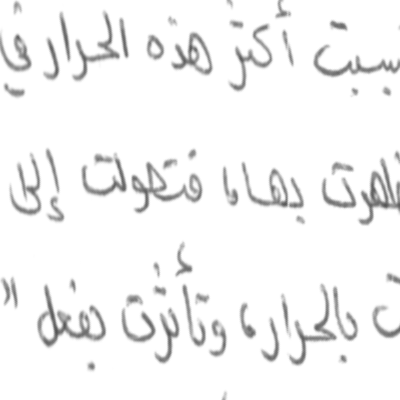 نسبت أكثر هذه الحرار في
ظهرت بها، فتحولت إلى
ت بالحرار، وتأثرت بفعل "